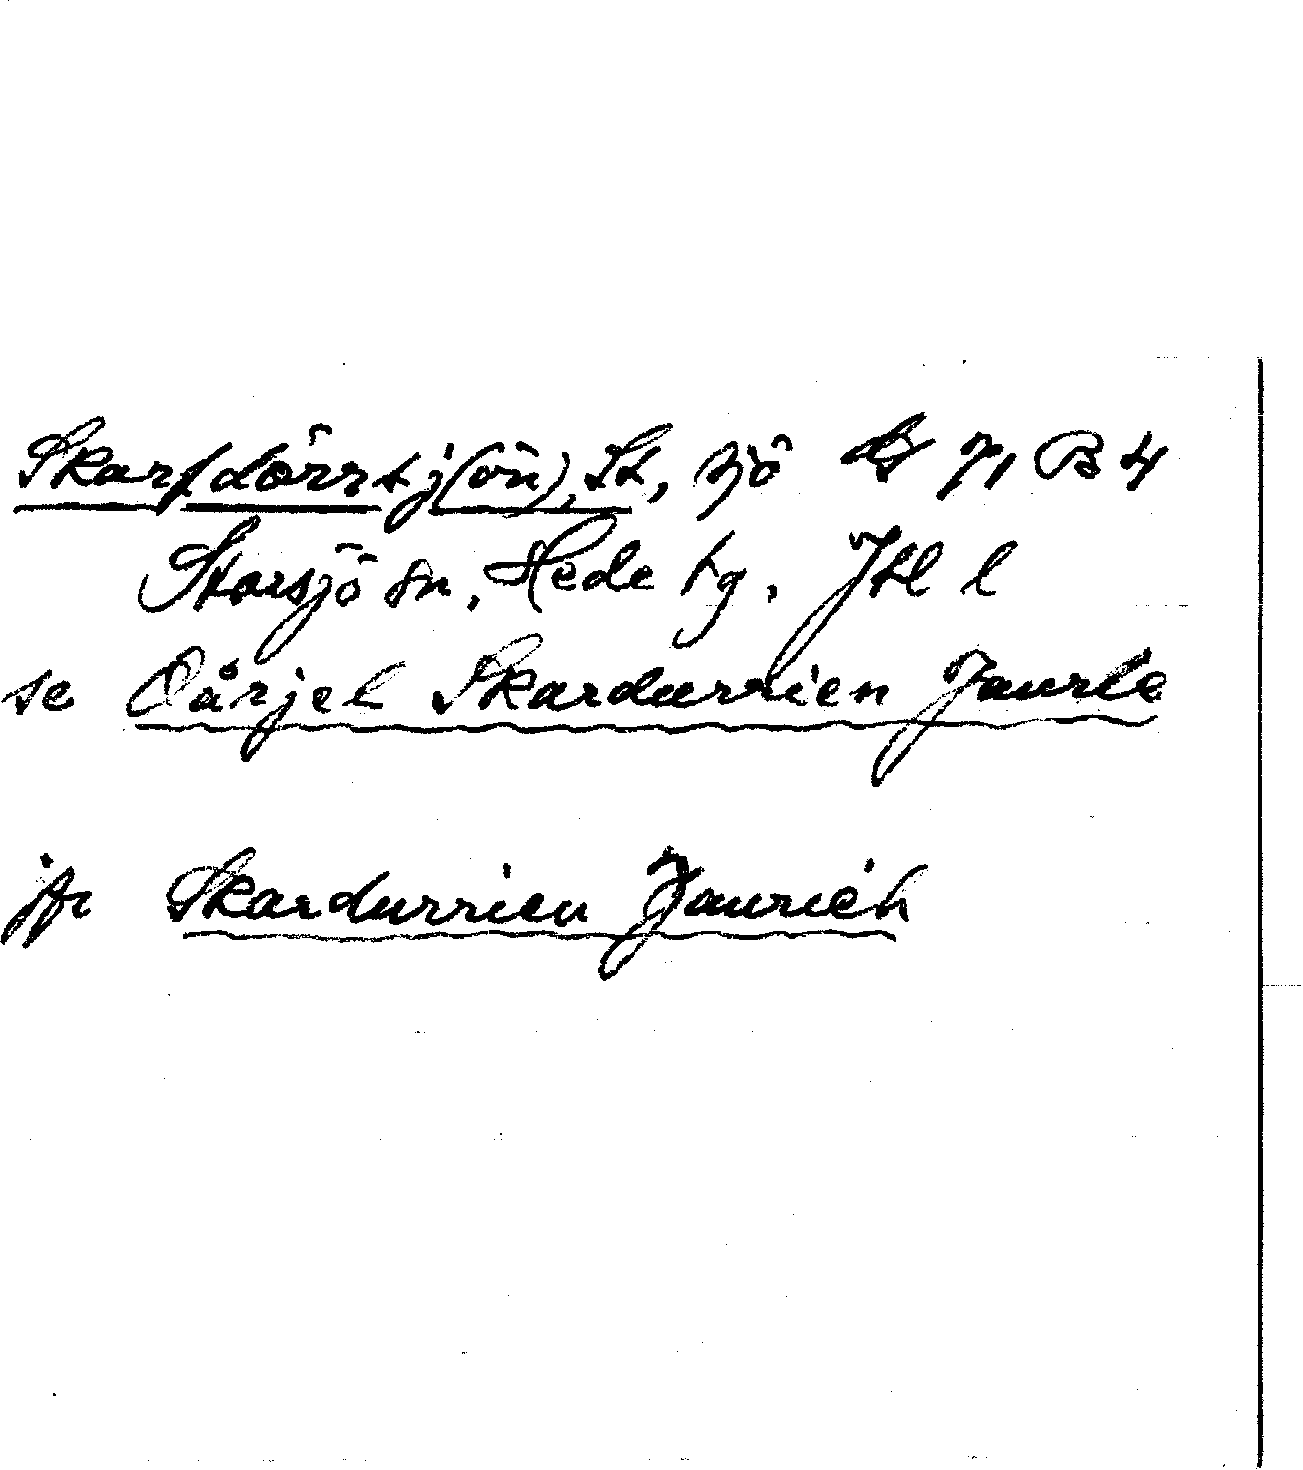 Skarfdörrsj(ön), St, sjö 71 B 4
Storsjö sn, Hede tg, Jtl l
se Oårjel Skardurrien Jaurie
jfr Skardurrien Jaurieh